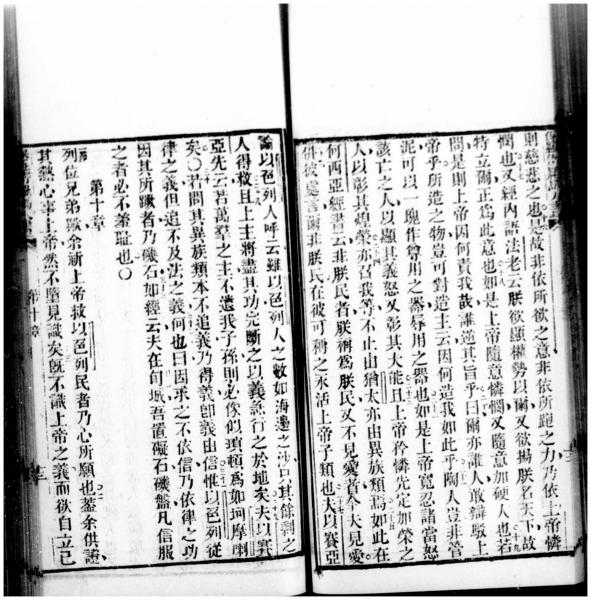 則慈悲之也是故非依所欲之意非依所跑之力乃依上帝憐
憫也又經內語法老云朕欲顯權勢以爾又欲揚朕名天下故
特立爾正為此意也如是上帝隨意憐憫又隨意加硬人也若
問是則上帝因何責我哉誰逆其旨乎曰爾亦誰人敢辯駁上
帝乎所造之物豈可對造主云因何造我如此乎陶人豈非管
泥可以一塊作尊用之器辱用之器也如是上帝寬忍諸當怒
該亡之人以顯其義怒又彰其大能且上帝矜憐先定加榮之
人以彰其榮亦召我等不止由猶太亦由異族類焉如此在
何西亞經書云非朕民者朕稱為朕民又不見愛者今大見愛
彼處言爾非朕民在彼可稱之永活上帝子類也夫以賽亞
論以色列人呼云雖以色列人之數如海邊之沙只其餘剩之
人得救且上主將盡其功完斷之以義行之於地矣夫以賽
亞先云若萬羣之主不遺我子孫則必像似瑣頓為如坷摩喇
矣○若問其異族類本不追義乃得義卽義由信惟以色列從
律之義但追不及法之義何也曰因求之不依信乃依律之功
因其所蹶者乃礙石如經云夫在旬城吾置礙石磯盤凡信服
之者必不羞耻也○
第十章
列位兄弟歟余祈上帝救以色列民者乃心所願也蓋余供證
其熱心事上帝然不見識矣旣不識上帝之義而欲自立己
第十章